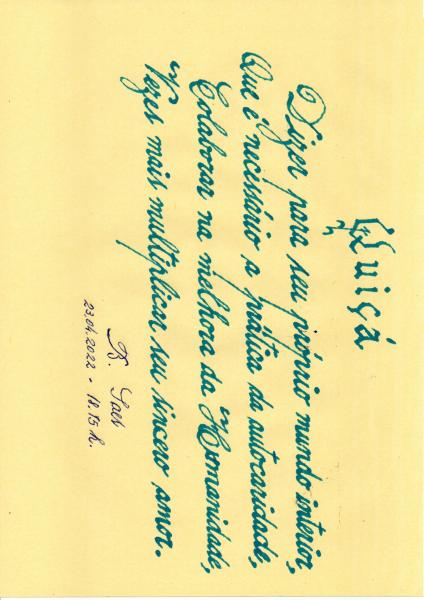 Quiçá
Dizer para seu próprio mundo interior,
Que é necessário a prática da autocaridade,
Colaborar na melhora da Humanidade,
Vezes mais multiplicar seu sincero amor.
B. Saes
23.04.2022 - 18.15 h.